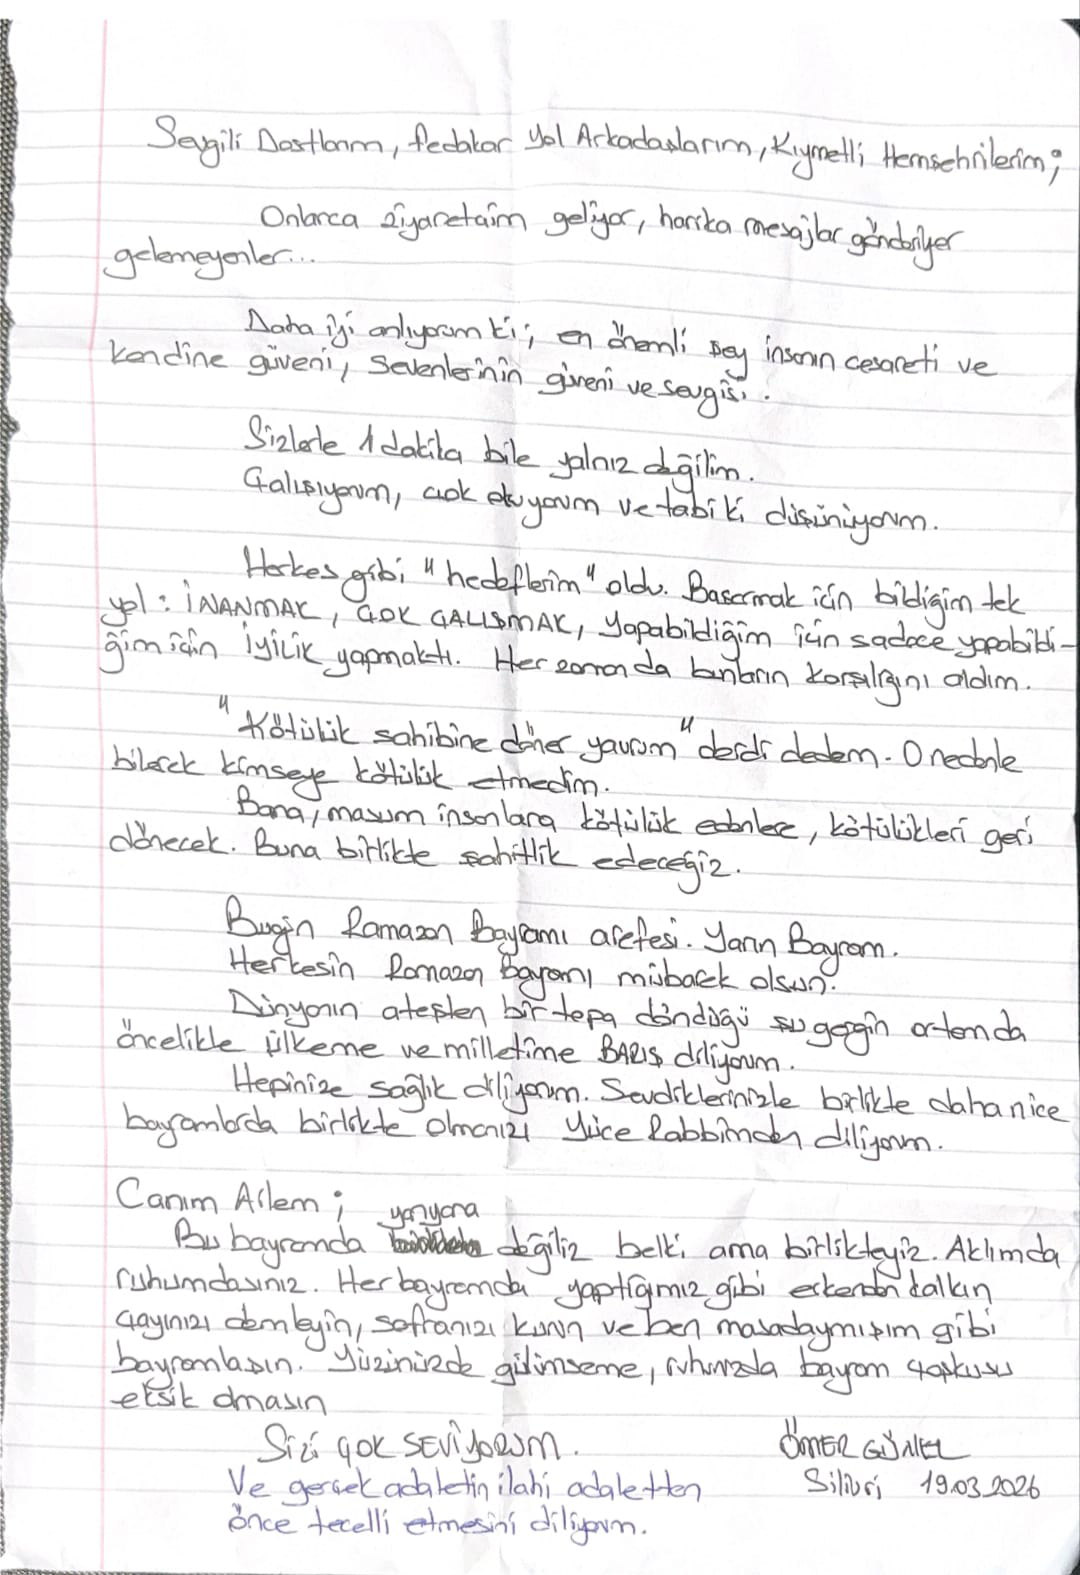 Sevgili Dostlarım, fedakar Yol Arkadaşlarım, Kıymetli Hemşehrilerim;
Onlarca ziyaretçim geliyor, harika mesajlar gönderiyor
gelemeyenler...
Daha iyi anlıyorum ki; en önemli şey insanın cesareti ve
kendine güveni, Sevenlerinin güveni ve sevgisi.
Sizlerle 1 dakika bile yalnız değilim.
Çalışıyorum, çok okuyorum ve tabiki düşünüyorum.
Herkes gibi "hedeflerim" oldu. Başarmak için bildiğim tek
yol: İNANMAK, ÇOK ÇALIŞMAK, Yapabildiğim için sadece yapabildi-
ğim için İYİLİK yapmaktı. Her zaman da bunların karşılığını aldım.
"Kötülük sahibine döner yavrum" derdi dedem. O nedenle
bilerek kimseye kötülük etmedim.
Bana, masum insanlara kötülük edenlere, kötülükleri geri
dönecek. Buna birlikte şahitlik edeceğiz.
Bugün Ramazan Bayramı arefesi. Yarın Bayram.
Herkesin Ramazan bayramı mübarek olsun.
Dünyanın ateşten bir topa döndüğü şu gergin ortamda
öncelikle ülkeme ve milletime BARIŞ diliyorum.
Hepinize sağlık diliyorum. Sevdiklerinizle birlikte daha nice
bayramlarda birlikte olmanızı Yüce Rabbimden diliyorum.
Canım Ailem;
Bu bayramda yanyana değiliz belki ama birlikteyiz. Aklımda
ruhumdasınız. Her bayramda yaptığımız gibi erkenden kalkın
çayınızı demleyin, sofranızı kurun ve ben masadaymışım gibi
bayramlaşın. Yüzünüzde gülümseme, ruhunuzda bayram coşkusu
eksik olmasın
Sizi ÇOK SEVİYORUM.
ÖMER GÜNEL
Ve gerçek adaletin ilahi adaletten
Silivri 19.03.2026
önce tecelli etmesini diliyorum.